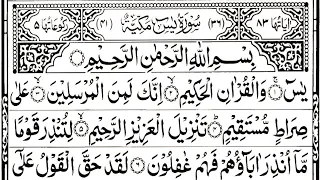 اٰیَاتُهَا ٨٣ (٣٦) سُوْرَةُ یٰسٓ مَكِّیَّةٌ (٤١) رُكُوْعَاتُهَا ٥
بِسْمِ اللّٰهِ الرَّحْمٰنِ الرَّحِیْمِ ○
یٰسٓ ۚ وَالْقُرْاٰنِ الْحَكِیْمِ ۙ اِنَّكَ لَمِنَ الْمُرْسَلِیْنَ ۙ عَلٰی
صِرَاطٍ مُّسْتَقِیْمٍ ؕ تَنْزِیْلَ الْعَزِیْزِ الرَّحِیْمِ ۙ لِتُنْذِرَ قَوْمًا
مَّاۤ اُنْذِرَ اٰبَآؤُهُمْ فَهُمْ غٰفِلُوْنَ ○ لَقَدْ حَقَّ الْقَوْلُ عَلٰۤی